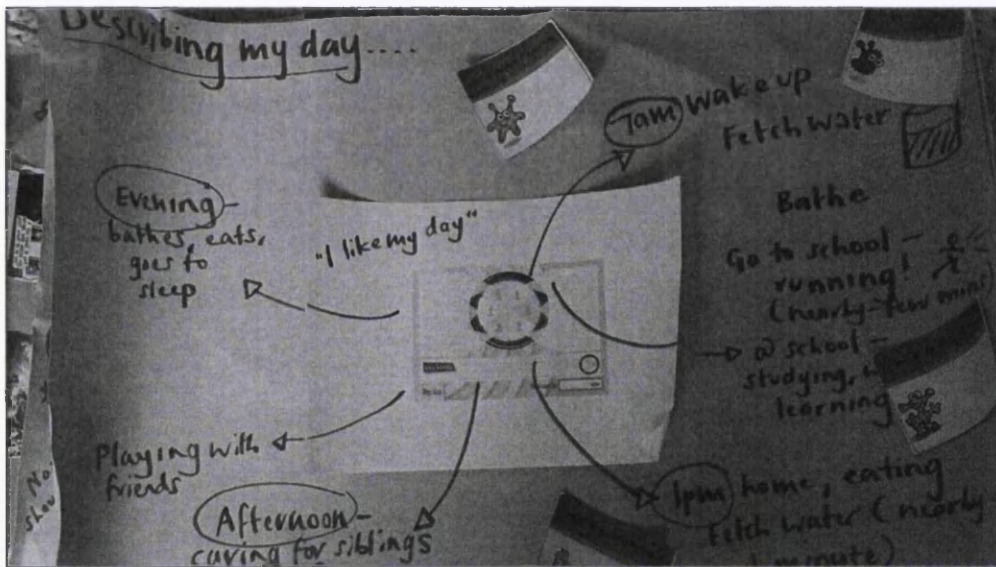 Describing my day....
7am Wake up
Fetch water
Bathe
Go to school -
running!
(nearby - few mins)
@ school -
studying,
learning
1pm home, eating
Fetch water (nearby
minute)
Afternoon -
caring for siblings
Playing with
friends
Evening -
bathes, eats,
goes to
sleep
"I like my day"
No
show